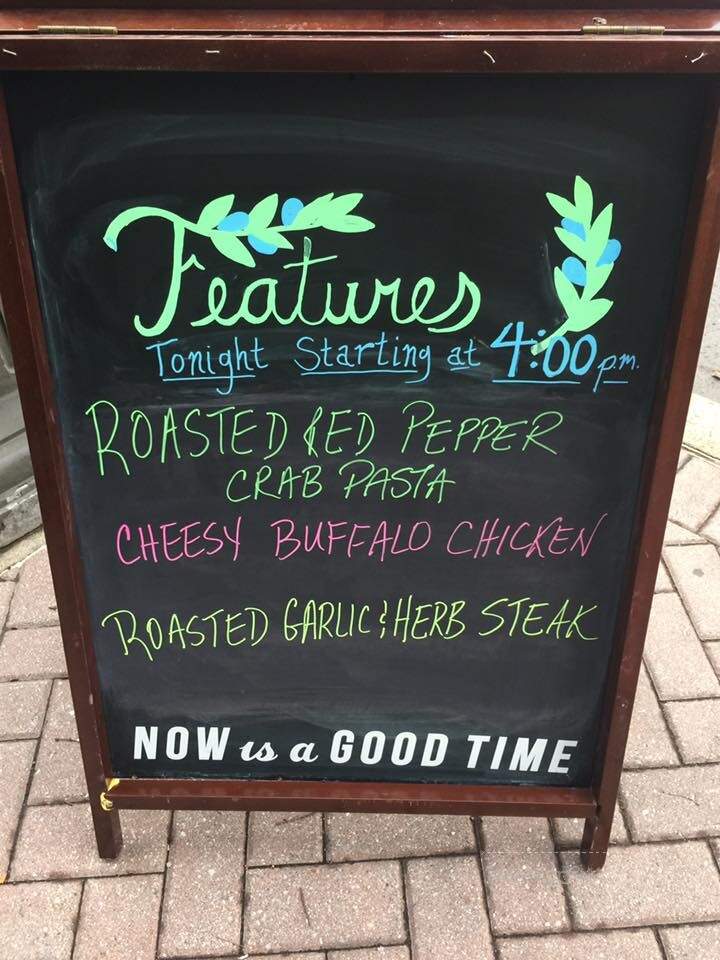 Features
Tonight Starting at 4:00 p.m.
ROASTED RED PEPPER
CRAB PASTA
CHEESY BUFFALO CHICKEN
ROASTED GARLIC & HERB STEAK
NOW is a GOOD TIME